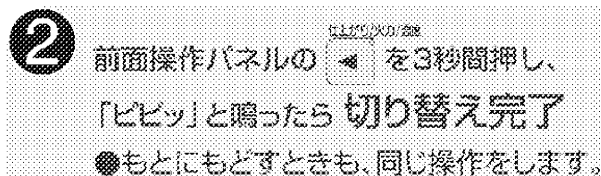 ❷
仕上がり/火力/温度
前面操作パネルの ◀ を3秒間押し、
「ピピッ」と鳴ったら 切り替え完了
●もとにもどすときも、同じ操作をします。